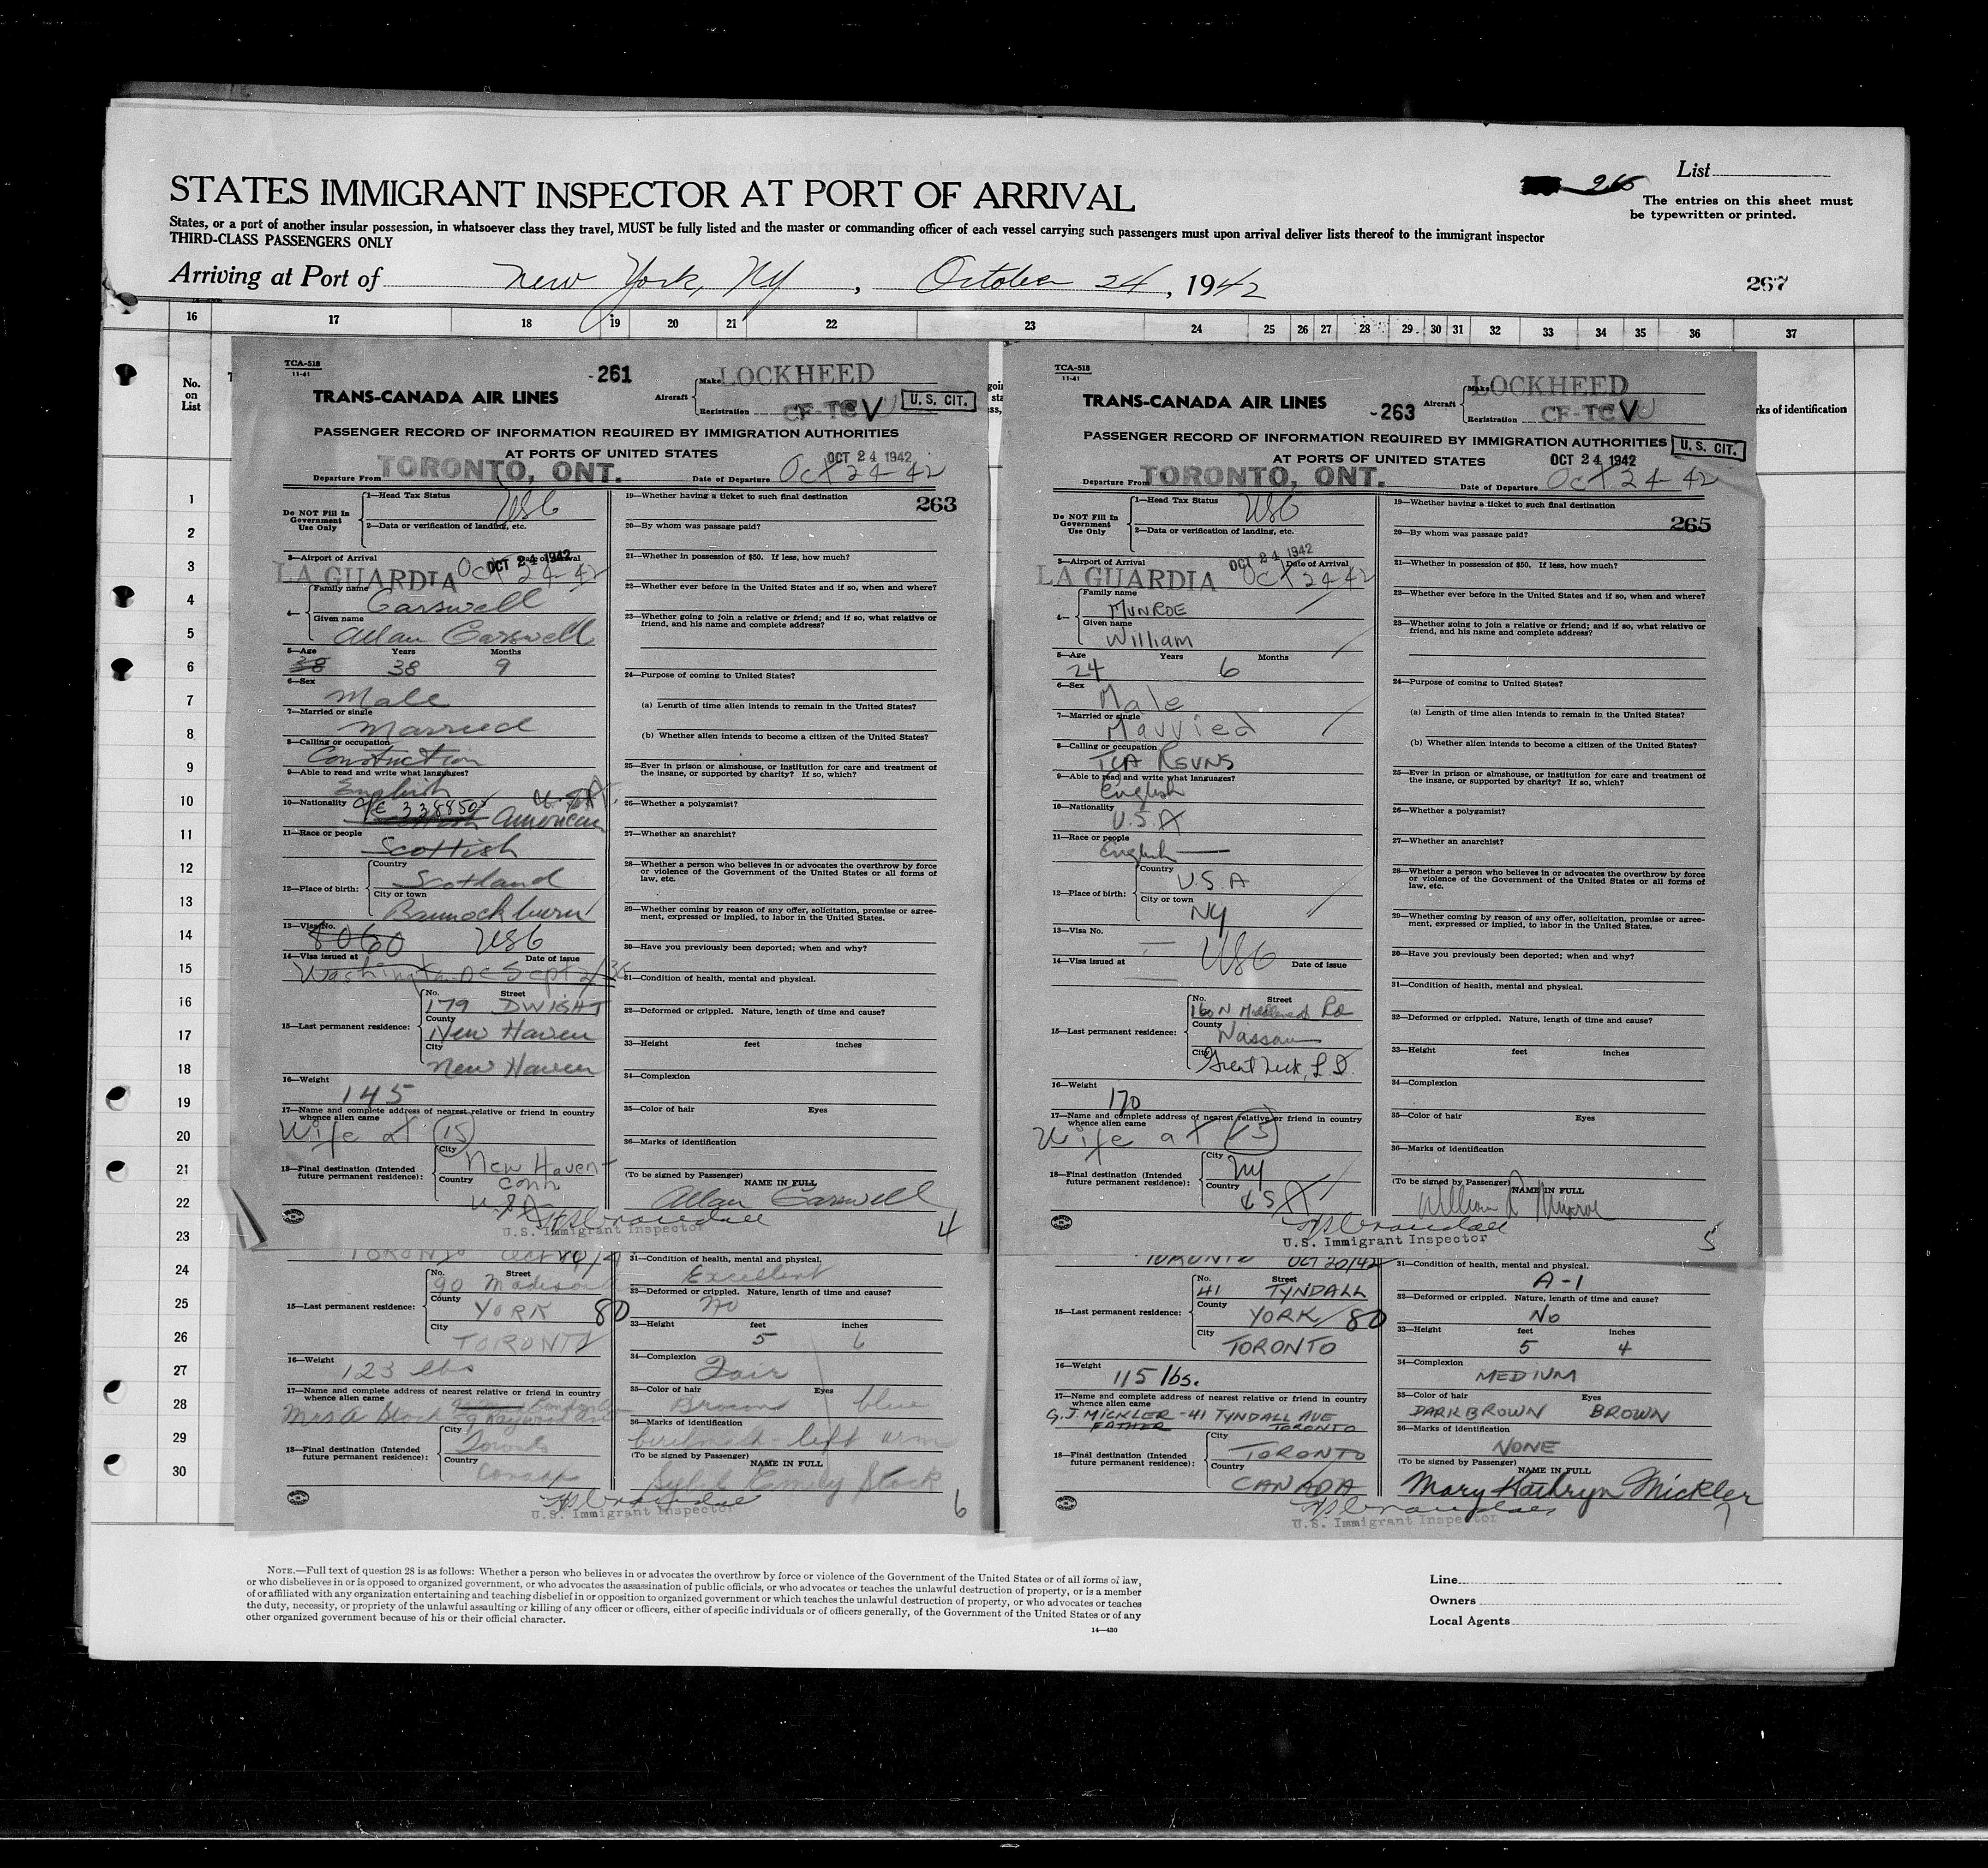 List
265
The entries on this sheet must
be typewritten or printed.
STATES IMMIGRANT INSPECTOR AT PORT OF ARRIVAL
States, or a port of another insular possession, in whatsoever class they travel, MUST be fully listed and the master or commanding officer of each vessel carrying such passengers must upon arrival deliver lists thereof to the immigrant inspector
THIRD-CLASS PASSENGERS ONLY
Arriving at Port of New York, NY, October 24, 1942
267
16 17 18 19 20 21 22 23 24 25 26 27 28 29 30 31 32 33 34 35 36 37
No.
on
List
rks of identification
1
2
3
4
5
6
7
8
9
10
11
12
13
14
15
16
17
18
19
20
21
22
23
24
25
26
27
28
29
30
TCA-518
11-41
-261
TRANS-CANADA AIR LINES
Aircraft
Make LOCKHEED
Registration CF-TCV
U. S. CIT.
PASSENGER RECORD OF INFORMATION REQUIRED BY IMMIGRATION AUTHORITIES
AT PORTS OF UNITED STATES
OCT 24 1942
Departure From TORONTO, ONT.
Date of Departure Oct 24-42
263
Do NOT Fill In
Government
Use Only
1—Head Tax Status
USC
2—Data or verification of landing, etc.
3—Airport of Arrival
Date of Arrival
LA GUARDIA
OCT 24 1942
Oct 24-42
4—
Family name
Carswell
Given name
Allan Carswell
5—Age Years Months
38 38 9
6—Sex
Male
7—Married or single
Married
8—Calling or occupation
Construction
9—Able to read and write what languages?
English
10—Nationality
U.S.A.
American
11—Race or people
Scottish
12—Place of birth:
Country
Scotland
City or town
Bannockburn
13—Visa No.
8060 USC
14—Visa issued at Date of issue
Washington DC Sept
15—Last permanent residence:
No. Street
179 DWIGHT
County
New Haven
City
New Haven
16—Weight
145
17—Name and complete address of nearest relative or friend in country
whence alien came
Wife at 15
18—Final destination (Intended
future permanent residence):
City
New Haven
Conn
Country
U.S.A.
19—Whether having a ticket to such final destination
20—By whom was passage paid?
21—Whether in possession of $50. If less, how much?
22—Whether ever before in the United States and if so, when and where?
23—Whether going to join a relative or friend; and if so, what relative or
friend, and his name and complete address?
24—Purpose of coming to United States?
(a) Length of time alien intends to remain in the United States?
(b) Whether alien intends to become a citizen of the United States?
25—Ever in prison or almshouse, or institution for care and treatment of
the insane, or supported by charity? If so, which?
26—Whether a polygamist?
27—Whether an anarchist?
28—Whether a person who believes in or advocates the overthrow by force
or violence of the Government of the United States or all forms of
law, etc.
29—Whether coming by reason of any offer, solicitation, promise or agree-
ment, expressed or implied, to labor in the United States.
30—Have you previously been deported; when and why?
31—Condition of health, mental and physical.
32—Deformed or crippled. Nature, length of time and cause?
33—Height feet inches
34—Complexion
35—Color of hair Eyes
36—Marks of identification
(To be signed by Passenger)
NAME IN FULL
Allan Carswell
U.S. Immigrant Inspector
4
TCA-518
11-41
TRANS-CANADA AIR LINES
-263
Aircraft
Make LOCKHEED
Registration CF-TCV
PASSENGER RECORD OF INFORMATION REQUIRED BY IMMIGRATION AUTHORITIES
U. S. CIT.
AT PORTS OF UNITED STATES
OCT 24 1942
Departure From TORONTO, ONT.
Date of Departure Oct 24-42
265
Do NOT Fill In
Government
Use Only
1—Head Tax Status
USC
2—Data or verification of landing, etc.
3—Airport of Arrival
Date of Arrival
LA GUARDIA
OCT 24 1942
Oct 24 42
4—
Family name
MUNROE
Given name
William
5—Age Years Months
24 6
6—Sex
Male
7—Married or single
Married
8—Calling or occupation
TCA RSVNS
9—Able to read and write what languages?
English
10—Nationality
U.S.A
11—Race or people
English
12—Place of birth:
Country
U.S.A
City or town
NY
13—Visa No.
USC
14—Visa issued at Date of issue
15—Last permanent residence:
No. Street
160 N Middleneck Rd
County
Nassau
City
Great Neck, L I.
16—Weight
170
17—Name and complete address of nearest relative or friend in country
whence alien came
Wife at 15
18—Final destination (Intended
future permanent residence):
City
NY
Country
USA
19—Whether having a ticket to such final destination
20—By whom was passage paid?
21—Whether in possession of $50. If less, how much?
22—Whether ever before in the United States and if so, when and where?
23—Whether going to join a relative or friend; and if so, what relative or
friend, and his name and complete address?
24—Purpose of coming to United States?
(a) Length of time alien intends to remain in the United States?
(b) Whether alien intends to become a citizen of the United States?
25—Ever in prison or almshouse, or institution for care and treatment of
the insane, or supported by charity? If so, which?
26—Whether a polygamist?
27—Whether an anarchist?
28—Whether a person who believes in or advocates the overthrow by force
or violence of the Government of the United States or all forms of
law, etc.
29—Whether coming by reason of any offer, solicitation, promise or agree-
ment, expressed or implied, to labor in the United States.
30—Have you previously been deported; when and why?
31—Condition of health, mental and physical.
32—Deformed or crippled. Nature, length of time and cause?
33—Height feet inches
34—Complexion
35—Color of hair Eyes
36—Marks of identification
(To be signed by Passenger)
NAME IN FULL
William R Munroe
U.S. Immigrant Inspector
5
TORONTO
15—Last permanent residence:
No. Street
90 Madison
County
YORK 80
City
TORONTO
16—Weight
123 lbs
17—Name and complete address of nearest relative or friend in country
whence alien came
Mrs A Stock
18—Final destination (Intended
future permanent residence):
City
Toronto
Country
Canada
31—Condition of health, mental and physical.
Excellent
32—Deformed or crippled. Nature, length of time and cause?
no
33—Height feet inches
5 6
34—Complexion
Fair
35—Color of hair Eyes
Brown blue
36—Marks of identification
birthmark - left arm
(To be signed by Passenger)
NAME IN FULL
Sybil Emily Stock
U.S. Immigrant Inspector
6
TORONTO OCT 20/42
15—Last permanent residence:
No. Street
41 TYNDALL
County
YORK 80
City
TORONTO
16—Weight
115 lbs.
17—Name and complete address of nearest relative or friend in country
whence alien came
G.J. MICKLER - 41 TYNDALL AVE
FATHER TORONTO
18—Final destination (Intended
future permanent residence):
City
TORONTO
Country
CANADA
31—Condition of health, mental and physical.
A-1
32—Deformed or crippled. Nature, length of time and cause?
No
33—Height feet inches
5 4
34—Complexion
MEDIUM
35—Color of hair Eyes
DARK BROWN BROWN
36—Marks of identification
NONE
(To be signed by Passenger)
NAME IN FULL
Mary Kathryn Mickler
U.S. Immigrant Inspector
7
NOTE.—Full text of question 28 is as follows: Whether a person who believes in or advocates the overthrow by force or violence of the Government of the United States or of all forms of law,
or who disbelieves in or is opposed to organized government, or who advocates the assassination of public officials, or who advocates or teaches the unlawful destruction of property, or is a member
of or affiliated with any organization entertaining and teaching disbelief in or opposition to organized government or which teaches the unlawful destruction of property, or who advocates or teaches
the duty, necessity, or propriety of the unlawful assaulting or killing of any officer or officers, either of specific individuals or of officers generally, of the Government of the United States or of any
other organized government because of his or their official character.
14—430
Line
Owners
Local Agents